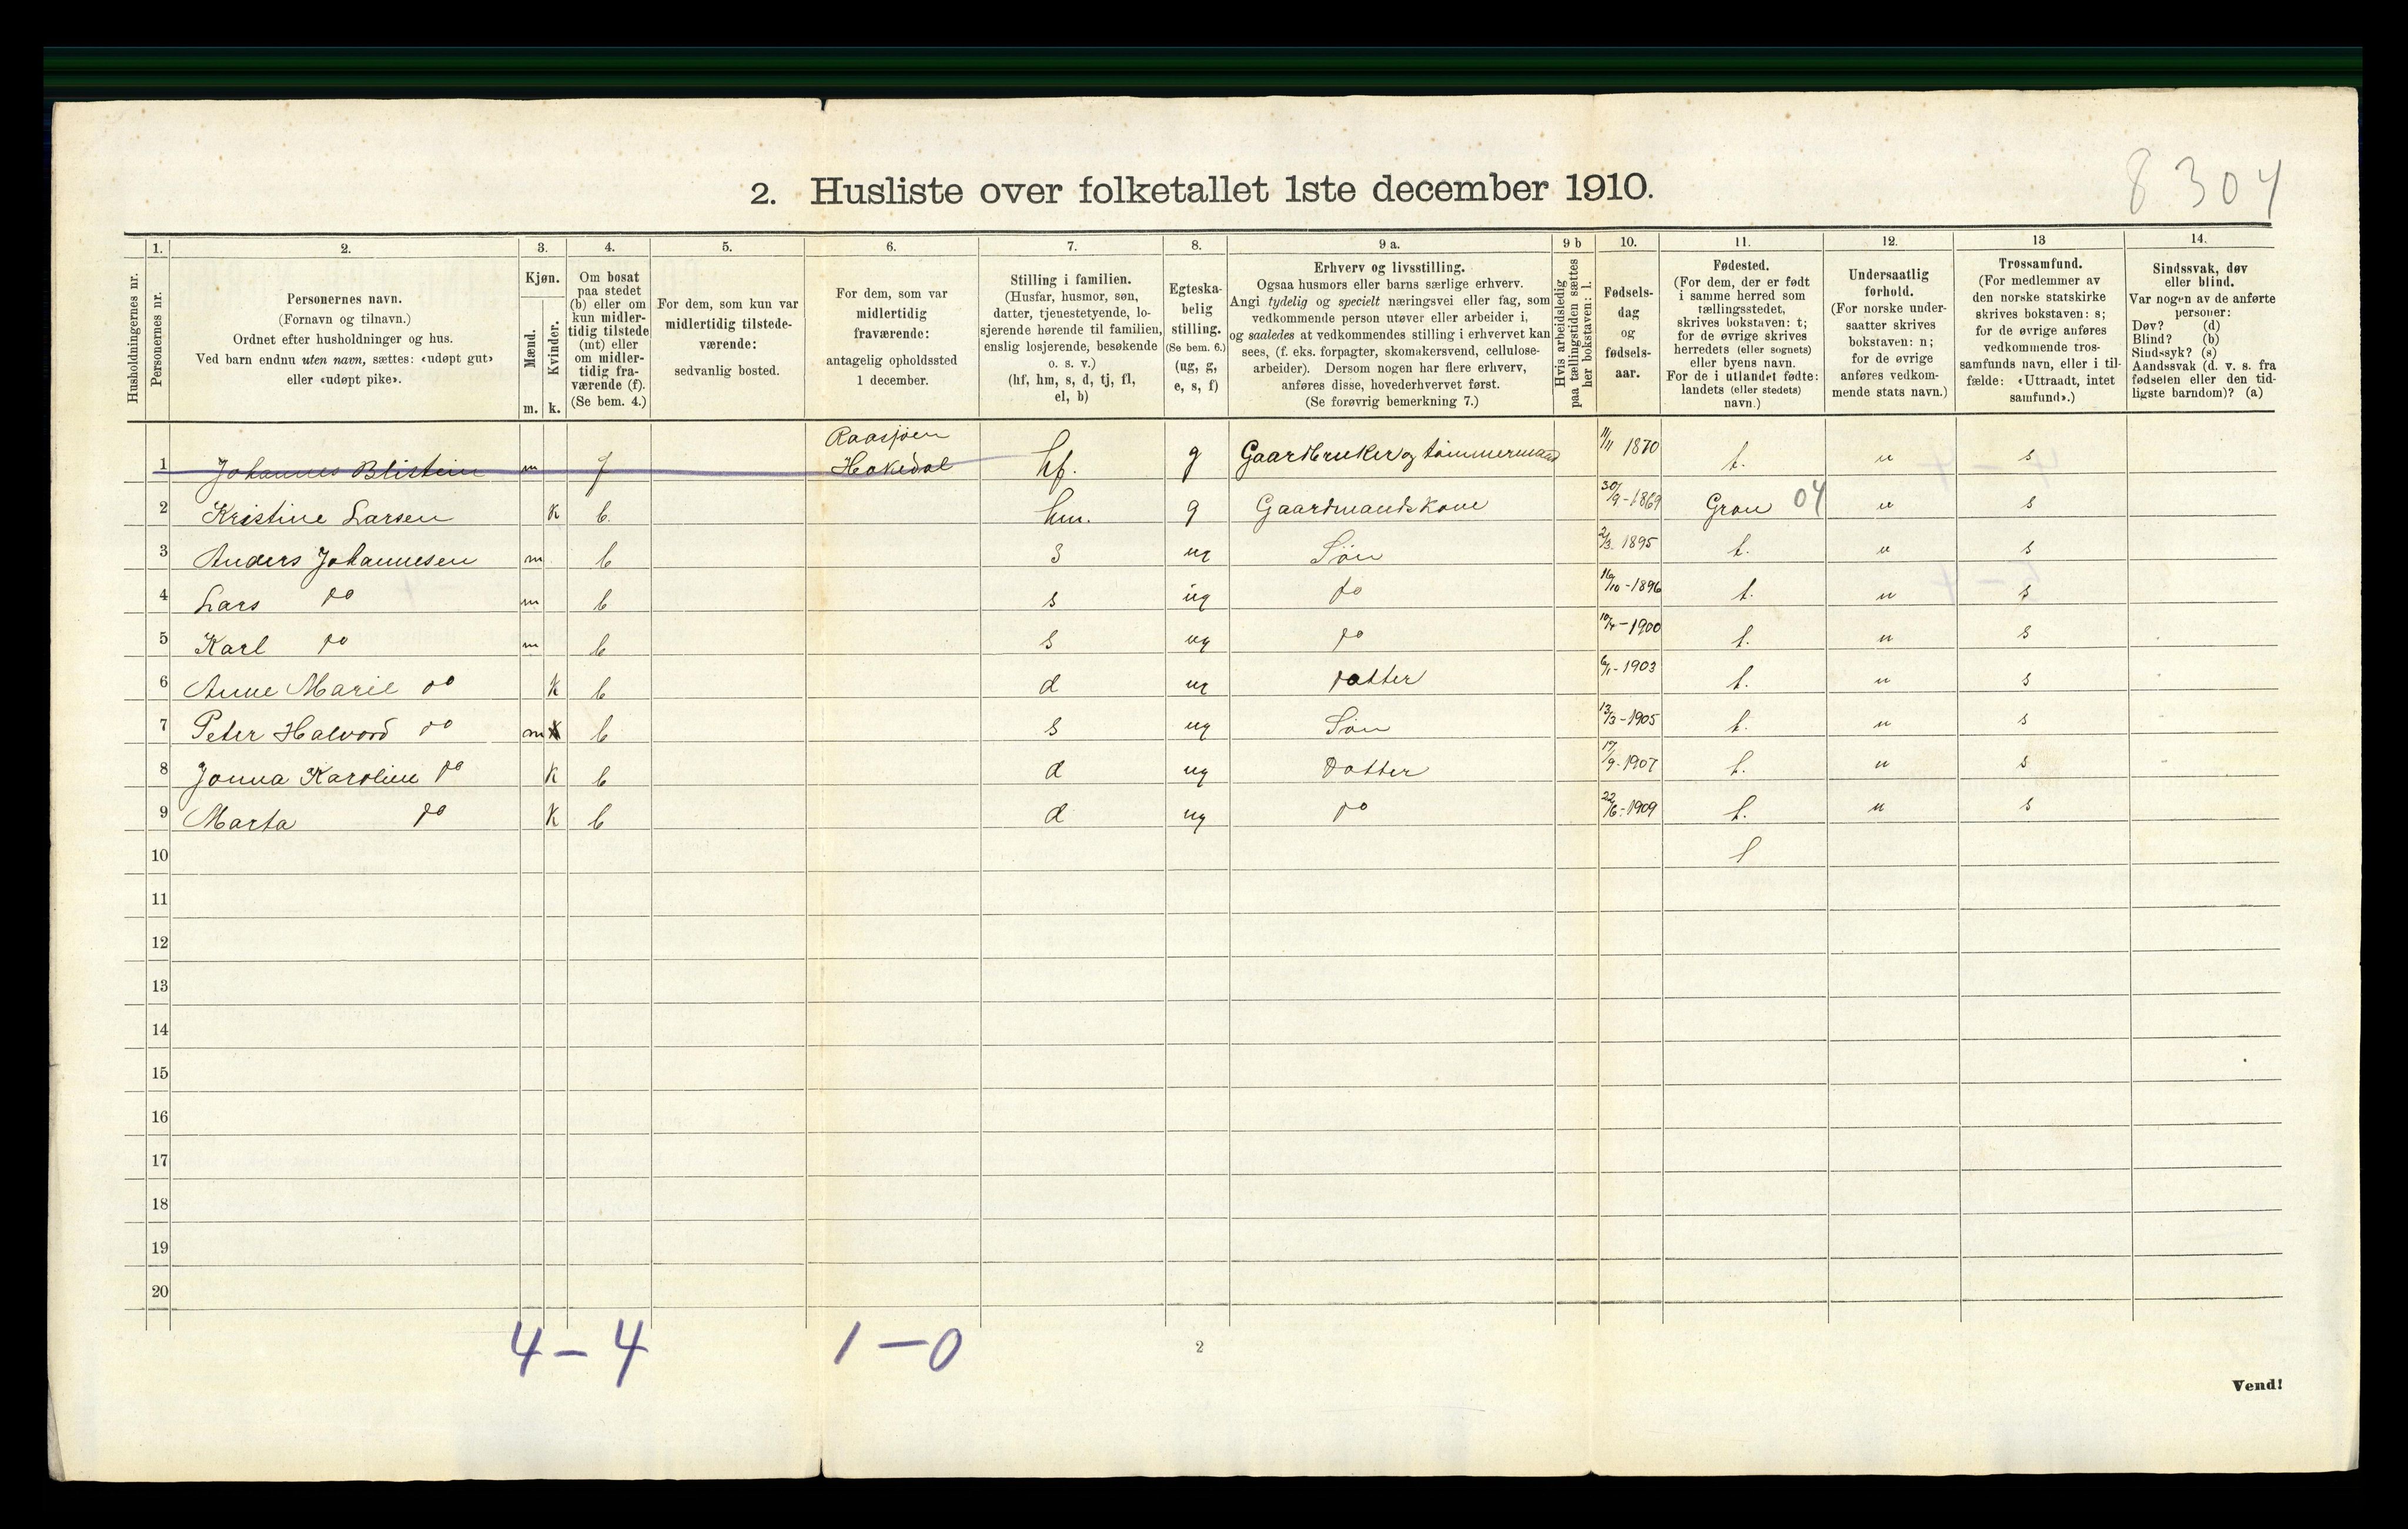 8304
2. Husliste over folketallet 1ste december 1910.
1. 2. 3. 4. 5. 6. 7. 8. 9 a. 9 b 10. 11. 12. 13 14.
Husholdningernes nr.
Personernes nr.
Personernes navn.
(Fornavn og tilnavn.)
Ordnet efter husholdninger og hus.
Ved barn endnu uten navn, sættes: «udøpt gut»
eller «udøpt pike».
Kjøn.
Mænd.
Kvinder.
m. k.
Om bosat
paa stedet
(b) eller om
kun midler-
tidig tilstede
(mt) eller
om midler-
tidig fra-
værende (f).
(Se bem. 4.)
For dem, som kun var
midlertidig tilstede-
værende:
sedvanlig bosted.
For dem, som var
midlertidig
fraværende:
antagelig opholdssted
1 december.
Stilling i familien.
(Husfar, husmor, søn,
datter, tjenestetyende, lo-
sjerende hørende til familien,
enslig losjerende, besøkende
o. s. v.)
(hf, hm, s, d, tj, fl,
el, b)
Egteska-
belig
stilling.
(Se bem. 6.)
(ug, g,
e, s, f)
Erhverv og livsstilling.
Ogsaa husmors eller barns særlige erhverv.
Angi tydelig og specielt næringsvei eller fag, som
vedkommende person utøver eller arbeider i,
og saaledes at vedkommendes stilling i erhvervet kan
sees, (f. eks. forpagter, skomakersvend, cellulose-
arbeider). Dersom nogen har flere erhverv,
anføres disse, hovederhvervet først.
(Se forøvrig bemerkning 7.)
Hvis arbeidsledig
paa tællingstiden sættes
her bokstaven: l.
Fødsels-
dag
og
fødsels-
aar.
Fødested.
(For dem, der er født
i samme herred som
tællingsstedet,
skrives bokstaven: t;
for de øvrige skrives
herredets (eller sognets)
eller byens navn.
For de i utlandet fødte:
landets (eller stedets)
navn.)
Undersaatlig
forhold.
(For norske under-
saatter skrives
bokstaven: n;
for de øvrige
anføres vedkom-
mende stats navn.)
Trossamfund.
(For medlemmer av
den norske statskirke
skrives bokstaven: s;
for de øvrige anføres
vedkommende tros-
samfunds navn, eller i til-
fælde: «Uttraadt, intet
samfund».)
Sindssvak, døv
eller blind.
Var nogen av de anførte
personer:
Døv? (d)
Blind? (b)
Sindssyk? (s)
Aandssvak (d. v. s. fra
fødselen eller den tid-
ligste barndom)? (a)
Raasjøen
1 Johannes Blistein m f Hakedal hf. g Gaardbruker og tømmermand 11/11 1870 t. n s
2 Kristine Larsen k b. hm. g Gaardmandskone 30/9-1869 Gran 04 n s
3 Anders Johannesen m b s ug Søn 2/3. 1895 t. n s
4 Lars do m b s ug do 16/10-1896 t. n s
5 Karl do m b s ug do 1900 t. n s
6 Anne Marie do k b d ug datter 6/1-1903 t. n s
7 Peter Halvord do m k b s ug Søn 13/3-1905 t. n s
8 Jonna Karoline do k b d ug Datter 17/9-1907 t. n s
9 Marta do k b d ug do 22/6-1909 t. n s
10
11
12
13
14
15
16
17
18
19
20
4 - 4 1 - 0
2
Vend!